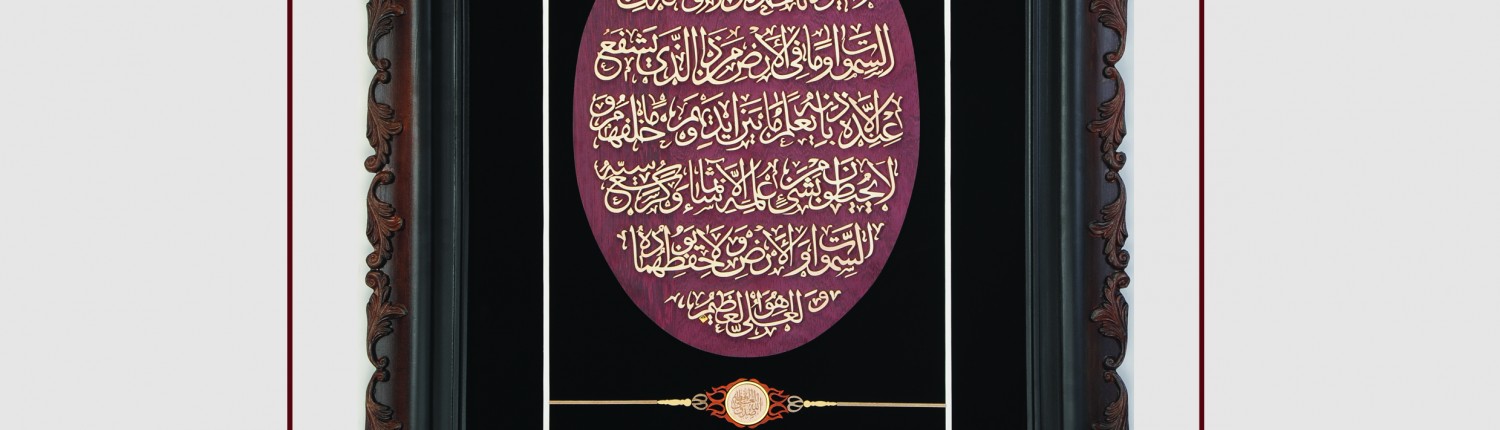 السموات وما فى الأرض من ذا الذى يشفع
عنده إلا بإذنه يعلم ما بين أيديهم وما خلفهم و
لا يحيطون بشئ من علمه إلا بما شاء وسع كرسيه
السموات والأرض ولا يؤده حفظهما
وهو العلى العظيم